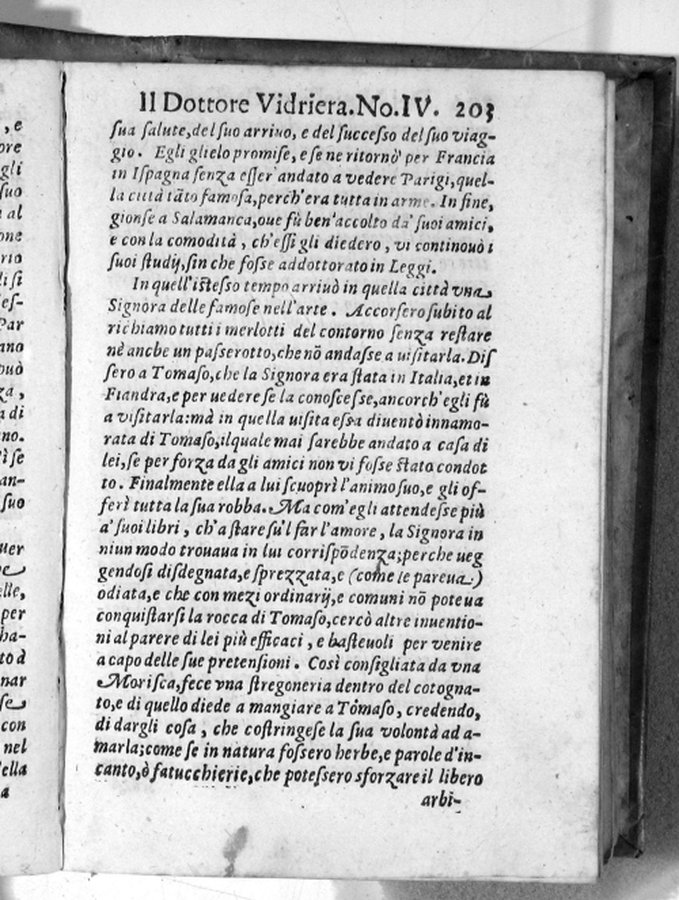 Il Dottore Vidriera. No. IV. 203
sua salute, del suo arriuo, e del successo del suo viag-
gio. Egli glielo promise, e se ne ritornò per Francia
in Ispagna senza esser andato a vedere Parigi, quel-
la città tãto famosa, perch'era tutta in arme. In fine,
gionse a Salamanca, oue fù ben'accolto da' suoi amici,
e con la comodità, ch'essi gli diedero, vi continouò i
suoi studij, sin che fosse addottorato in Leggi.
In quell'istesso tempo arriuò in quella città vna
Signora delle famose nell'arte. Accorsero subito al
richiamo tutti i merlotti del contorno senza restare
nè anche un passerotto, che nõ andasse a uisitarla. Dis
sero a Tomaso, che la Signora era stata in Italia, et in
Fiandra, e per uedere se la conoscesse, ancorch'egli fù
a visitarla: mà in quella uisita essa diuentò innamo-
rata di Tomaso, ilquale mai sarebbe andato a casa di
lei, se per forza da gli amici non vi fosse stato condot
to. Finalmente ella a lui scuoprì l'animo suo, e gli of-
ferì tutta la sua robba. Ma com'egli attendesse più
a' suoi libri, ch'a stare su'l far l'amore, la Signora in
niun modo trouaua in lui corrispõdenza; perche ueg
gendosi disdegnata, e sprezzata, e (come le pareua)
odiata, e che con mezi ordinarij, e comuni nõ poteua
conquistarsi la rocca di Tomaso, cercò altre inuentio-
ni al parere di lei più efficaci, e basteuoli per venire
a capo delle sue pretensioni. Così consigliata da vna
Morisca, fece vna stregoneria dentro del cotogna-
to, e di quello diede a mangiare a Tomaso, credendo,
di dargli cosa, che costringese la sua volontà ad a-
marla; come se in natura fossero herbe, e parole d'in-
canto, ò fatucchierie, che potessero sforzare il libero
arbi-
, e
ore
gli
suo
al
one
rio
li si
es-
Par
ano
può
za,
a di
no.
i se
an-
suo
uer
elle,
per
ha-
to d
nar
se
con
nel
ella
a